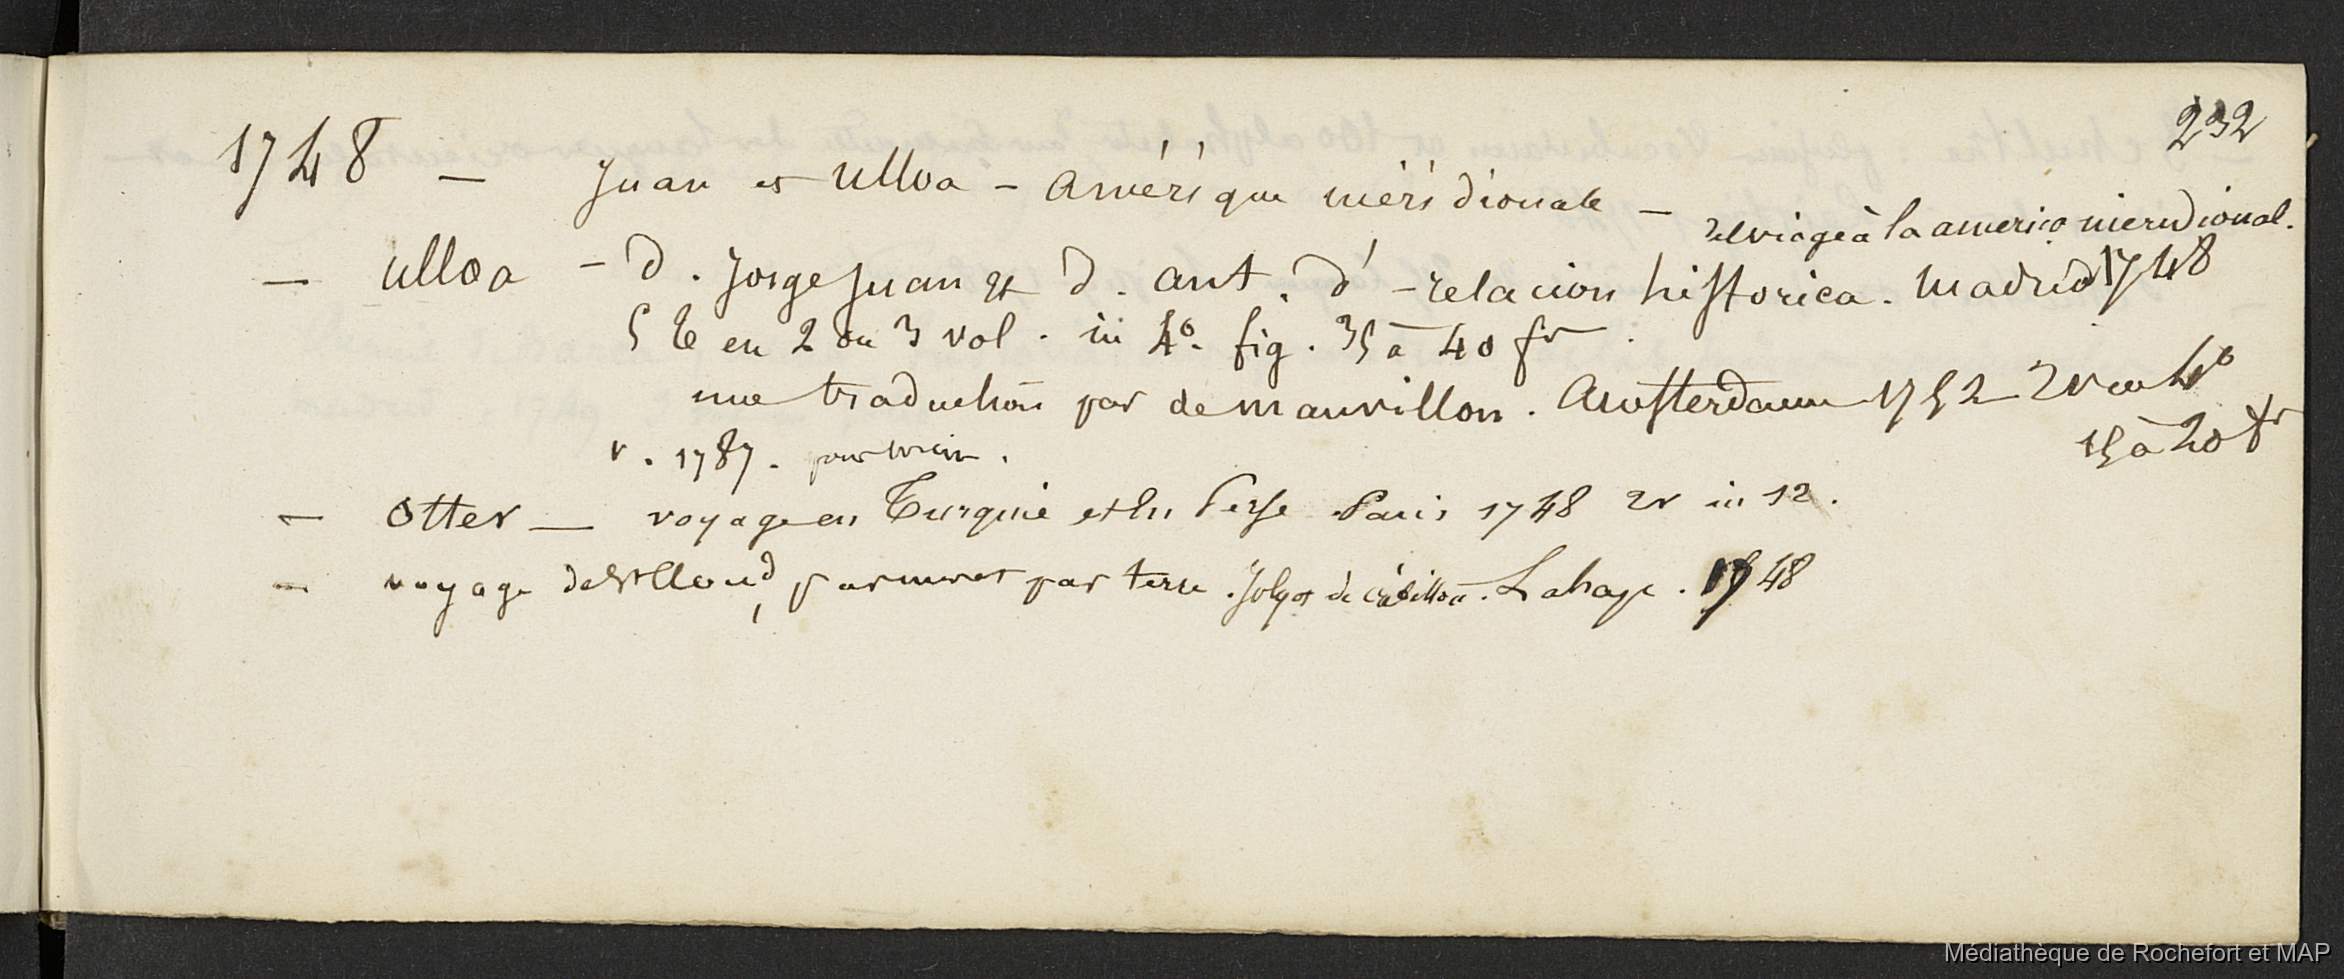 232
1748 — Juan et Ulloa - Amérique méridionale —
del viage à la america meridional.
— Ulloa - d. Jorge Juan et d. ant. d' - relacion historica. Madrid 1748
5 t. en 2 ou 3 vol. in 4°. fig. 35 à 40 fr.
une traduction par de mauvillon. Amsterdam 1752 2 v in 4°
15 à 20 fr
v. 1787. pour
— Otter — voyage en Turquie et en Perse Paris 1748 2v in 12.
— voyage de St Cloud, par mer et par terre. de crébillon. Lahaye. 1748
Médiathèque de Rochefort et MAP